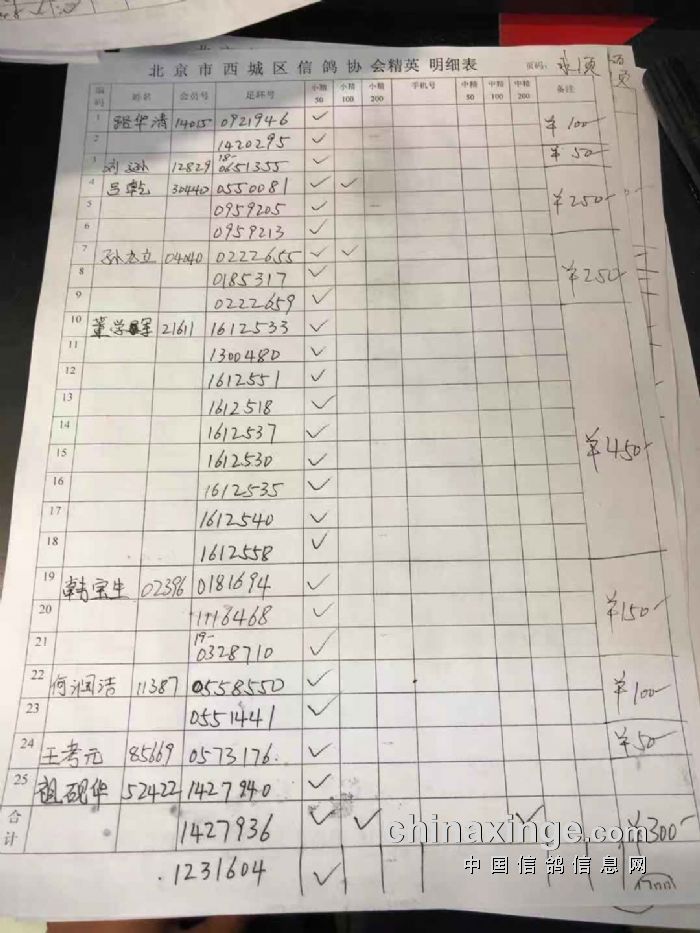 北京市西城区信鸽协会精英 明细表 页码:
编码 姓名 会员号 足环号 小精50 小精100 小精200 手机号 中精50 中精100 中精200 备注
1 路华清 14015 0921946 ✓ ¥100-
2 1420295 ✓
3 12829 18-0651355 ✓ ¥50-
4 吕乾 30440 0550081 ✓ ✓ ¥250-
5 0959205 ✓
6 0959213 ✓
7 孙志立 04040 0222655 ✓ ✓ ¥250-
8 0185317 ✓
9 0222659 ✓
10 董学军 21611 1612533 ✓ ¥450-
11 1300480 ✓
12 1612551 ✓
13 1612518 ✓
14 1612537 ✓
15 1612530 ✓
16 1612535 ✓
17 1612540 ✓
18 1612558 ✓
19 韩宝生 02396 0181694 ✓ ¥150-
20 1116468 ✓
21 19-0328710 ✓
22 何润洁 11387 0558550 ✓ ¥100-
23 0551441 ✓
24 王考元 85669 0573176 ✓ ¥50-
25 祖砚华 52422 1427940 ✓
合计 1427936 ✓ ✓ ✓ ¥300-
1231604 ✓
chinaxinge.com
中国信鸽信息网